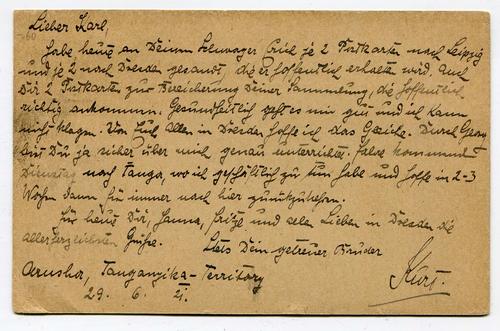 Lieber Karl,
habe heute an Deinen Schwager Erich je 2 Postkarten nach Leipzig
und je 2 nach Dresden gesandt, die er hoffentlich erhalten wird. Auch
Dir 2 Postkarten zur Bereicherung Deiner Sammlung, die hoffentlich
richtig ankommen. Gesundheitlich geht es mir gut und ich kann
nicht klagen. Von Euch allen in Dresden hoffe ich das Gleiche. Durch Georg
bist Du ja sicher über mich genau unterrichtet. Fahre kommend
Dienstag nach Tanga, wo ich geschäftlich zu tun habe und hoffe in 2-3
Wochen dann für immer nach hier zurückzukehren.
Für heute Dir, Hanna, Fritze und allen Lieben in Dresden die
allerherzlichsten Grüße. Stets Dein getreuer Bruder
Kurt.
Arusha, Tanganyika-Territory
29. 6.